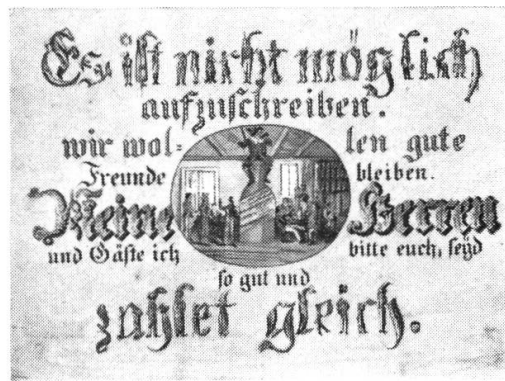 Es ist nicht möglich
aufzuschreiben.
wir wol= len gute
Freunde bleiben.
Meine Herren
und Gäste ich bitte euch, seyd
so gut und
zahlet gleich.